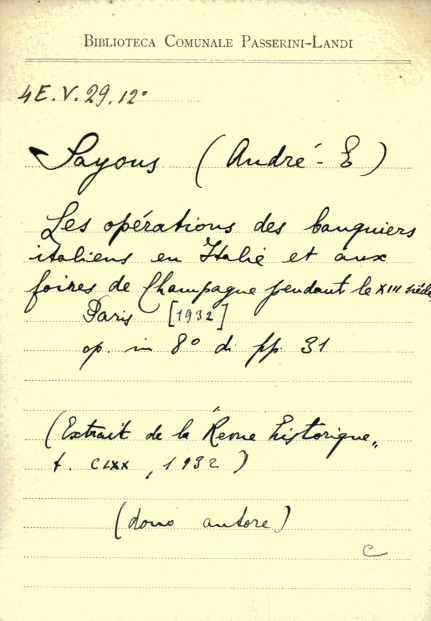 BIBLIOTECA COMUNALE PASSERINI-LANDI
4E.V.29.12°
Sayous (André-E)
Les opérations des banquiers
italiens en Italie et aux
foires de Champagne pendant le XIII siècle
Paris [1932]
op. in 8° di pp. 31
(Extrait de la "Revue historique"
t. CLXX, 1932)
(dono autore)
C